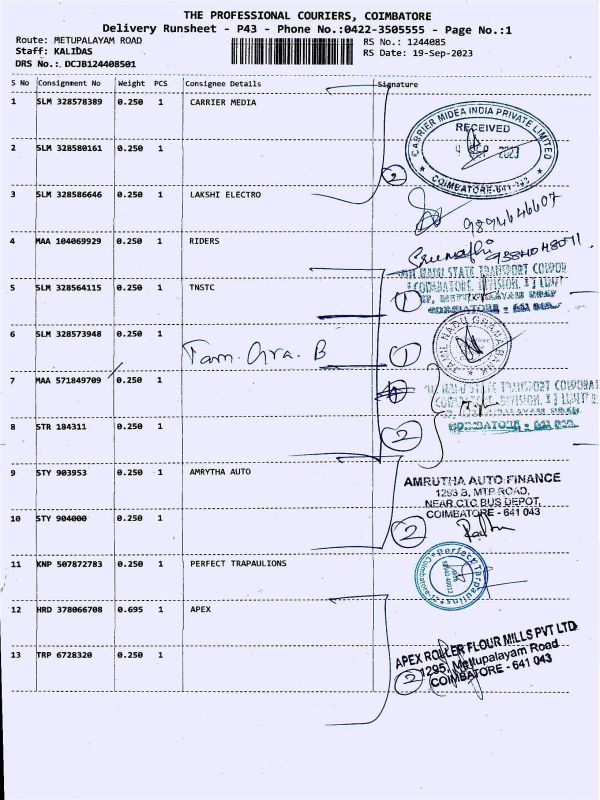 THE PROFESSIONAL COURIERS, COIMBATORE
Delivery Runsheet - P43 - Phone No.:0422-3505555 - Page No.:1
Route: METUPALAYAM ROAD
RS No.: 1244085
Staff: KALIDAS
RS Date: 19-Sep-2023
DRS No.: DCJB124408501
S No Consignment No Weight PCS Consignee Details Signature
1 SLM 328578389 0.250 1 CARRIER MEDIA
CARRIER MIDEA INDIA PRIVATE LIMITED
RECEIVED
2023
COIMBATORE-641
2 SLM 328580161 0.250 1
2
3 SLM 328586646 0.250 1 LAKSHI ELECTRO
9894646607
4 MAA 104069929 0.250 1 RIDERS
9384048011
STATE TRANSPORT
5 SLM 328564115 0.250 1 TNSTC
1
6 SLM 328573948 0.250 1
Tam. Gra. B
1
TAMIL NADU GRAMA BANK
7 MAA 571849709 0.250 1
STATE TRANSPORT
8 STR 184311 0.250 1
2
COIMBATORE - 641
9 STY 903953 0.250 1 AMRYTHA AUTO
AMRUTHA AUTO FINANCE
1293 B, MTP ROAD,
NEAR CTC BUS DEPOT,
COIMBATORE - 641 043
10 STY 904000 0.250 1
2
11 KNP 507872783 0.250 1 PERFECT TRAPAULIONS
Perfect Tarpaulins
12 HRD 378066708 0.695 1 APEX
13 TRP 6728320 0.250 1
APEX ROLLER FLOUR MILLS PVT LTD
1295, Mettupalayam Road
COIMBATORE - 641 043
2